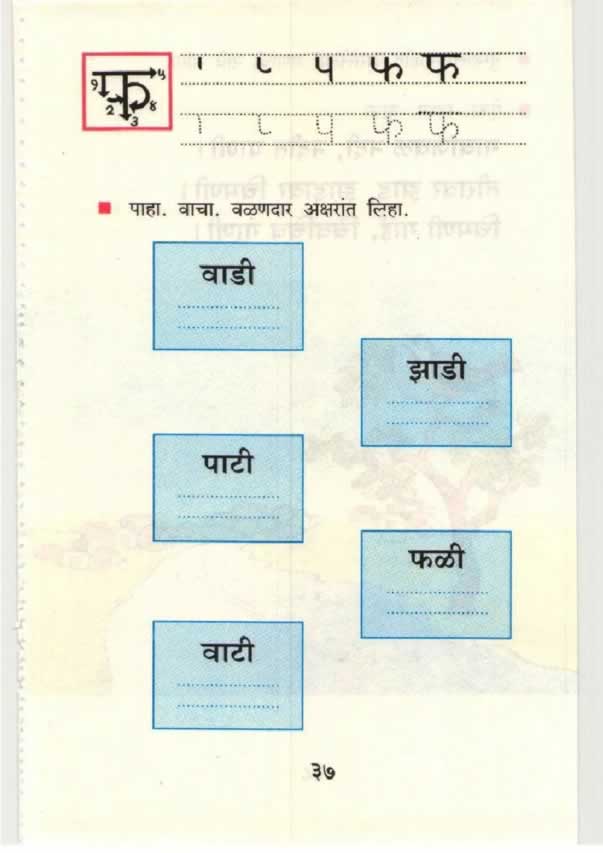 फ १ २ ३ ४ ५
ा ८ प फ फ
ा ८ प फ फ
पाहा. वाचा. वळणदार अक्षरांत लिहा.
वाडी
झाडी
पाटी
फळी
वाटी
३७